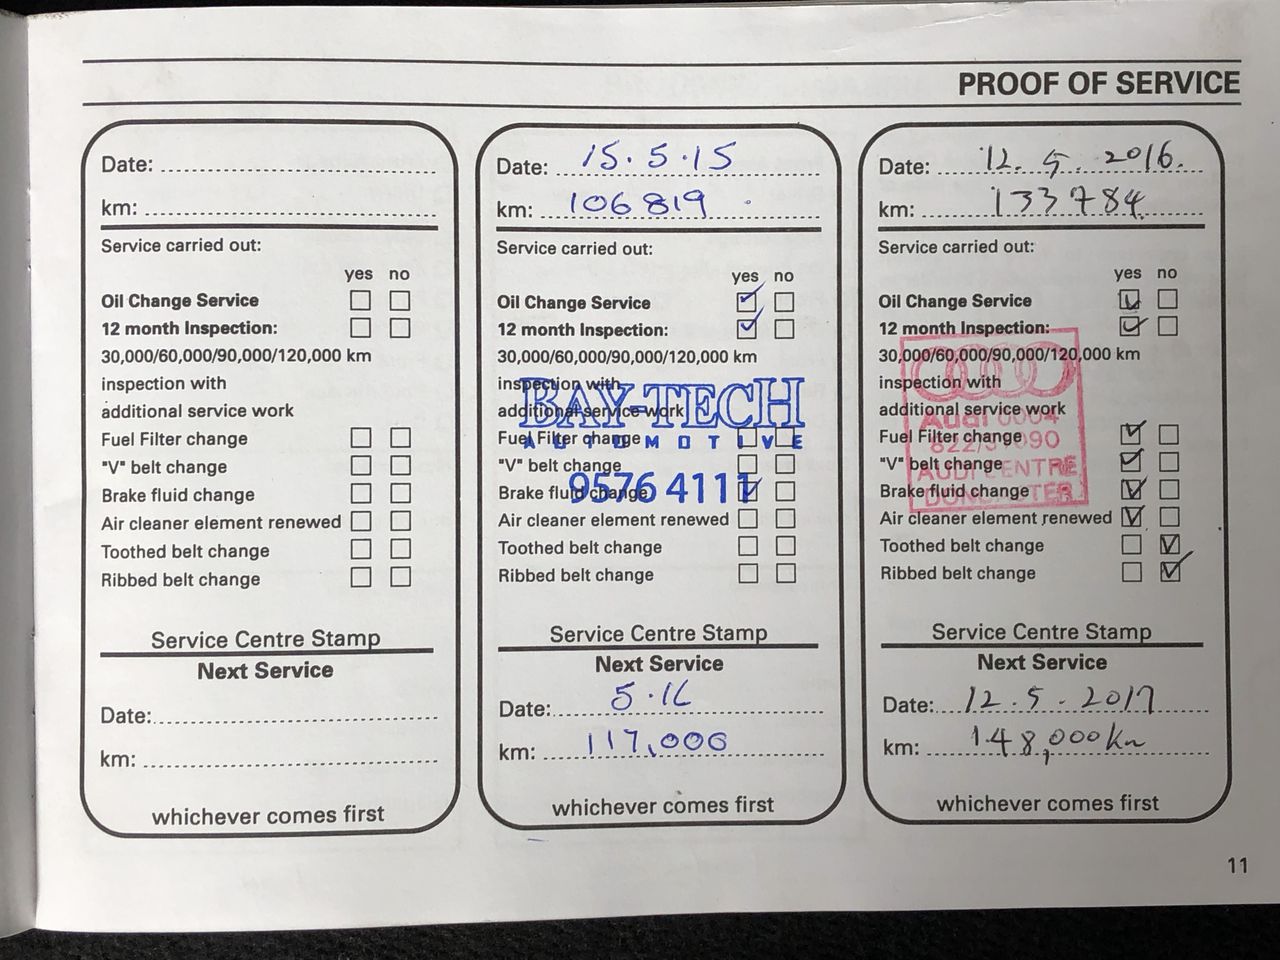 PROOF OF SERVICE
Date:
km:
Service carried out:
yes no
Oil Change Service
12 month Inspection:
30,000/60,000/90,000/120,000 km
inspection with
additional service work
Fuel Filter change
"V" belt change
Brake fluid change
Air cleaner element renewed
Toothed belt change
Ribbed belt change
Service Centre Stamp
Next Service
Date:
km:
whichever comes first
Date: 15.5.15
km: 106819
Service carried out:
yes no
Oil Change Service
12 month Inspection:
30,000/60,000/90,000/120,000 km
inspection with
additional service work
BAY-TECH
Fuel Filter change
AUTOMOTIVE
"V" belt change
Brake fluid change
9576 4111
Air cleaner element renewed
Toothed belt change
Ribbed belt change
Service Centre Stamp
Next Service
Date: 5.16
km: 117,000
whichever comes first
Date: 12.5.2016.
km: 133784
Service carried out:
yes no
Oil Change Service
12 month Inspection:
30,000/60,000/90,000/120,000 km
inspection with
additional service work
Audi
Fuel Filter change
"V" belt change
AUDI CENTRE
Brake fluid change
DONCASTER
Air cleaner element renewed
Toothed belt change
Ribbed belt change
Service Centre Stamp
Next Service
Date: 12.5.2017
km: 148,000km
whichever comes first
11